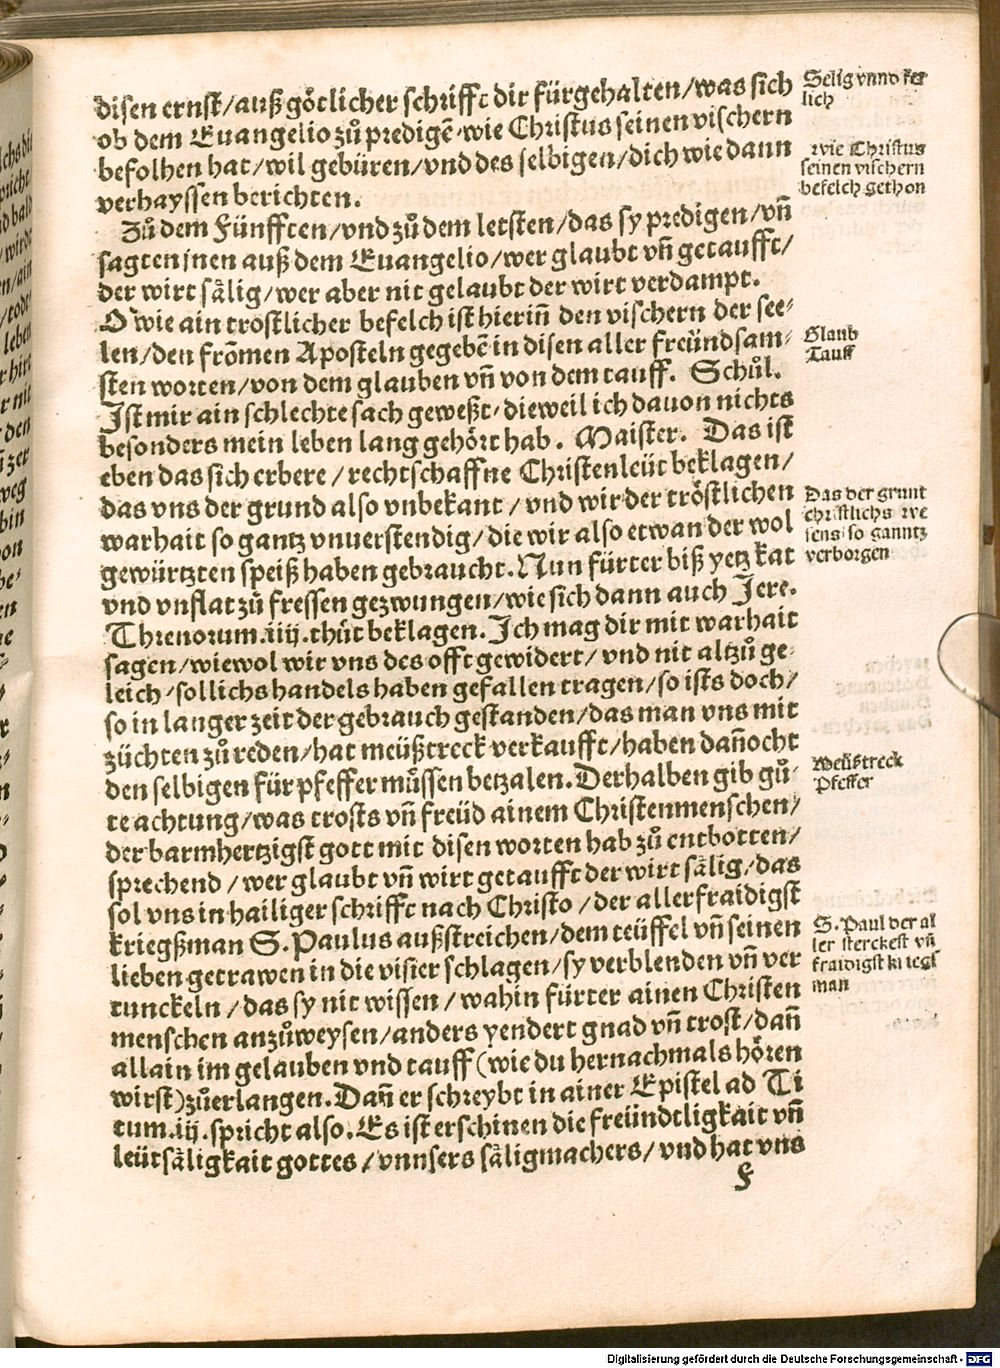 disen ernst/auß götlicher schrifft dir fürgehalten/was sich
ob dem Euangelio zů predigē/wie Christus seinen vischern
befolhen hat/wil gebüren/vnd des selbigen/dich wie dann
verhayssen berichten.
Zů dem Fünfften/vnd zů dem letsten/das sy predigen/vñ
sagten jnen auß dem Euangelio/wer glaubt vñ getaufft/
der wirt sälig/wer aber nit gelaubt der wirt verdampt.
O wie ain trostlicher befelch ist hieriñ den vischern der see-
len/den frōmen Aposteln gegebē in disen aller freündsam-
sten worten/von dem glauben vñ von dem tauff. Schůl.
Ist mir ain schlechte sach geweßt/dieweil ich dauon nichts
besonders mein leben lang gehört hab. Maister. Das ist
eben das sich erbere/rechtschaffne Christenleüt beklagen/
das vns der grund also vnbekant/vnd wir der tröstlichen
warhait so gantz vnuerstendig/die wir also etwan der wol
gewürtzten speiß haben gebraucht. Nun fürter biß yetz kat
vnd vnflat zů fressen gezwungen/wie sich dann auch Jere.
Threnorum.iiij.thůt beklagen. Ich mag dir mit warhait
sagen/wiewol wir vns des offt gewidert/vnd nit altzů ge-
leich/sollichs handels haben gefallen tragen/so ists doch/
so in langer zeit der gebrauch gestanden/das man vns mit
züchten zů reden/hat meüßtreck verkaufft/haben dañocht
den selbigen für pfeffer müssen betzalen. Derhalben gib gů-
te achtung/was trosts vñ freüd ainem Christenmenschen/
der barmhertzigst gott mit disen worten hab zů entbotten/
sprechend/wer glaubt vñ wirt getaufft der wirt sälig/das
sol vns in hailiger schrifft nach Christo/der allerfraidigst
kriegßman S. Paulus außstreichen/dem teüffel vñ seinen
lieben getrawen in die visier schlagen/sy verblenden vñ ver
tunckeln/das sy nit wissen/wahin fürter ainen Christen
menschen anzůweysen/anders yendert gnad vñ trost/dañ
allain im gelauben vnd tauff (wie du hernachmals hören
wirst) zůerlangen. Dañ er schreybt in ainer Epistel ad Ti
tum.iij.spricht also. Es ist erschinen die freündtligkait vñ
leütsäligkait gottes/vnnsers säligmachers/vnd hat vns
F
Selig vnnd
lich
wie Christus
seinen vischern
befelch gethon
Glaub
Tauff
Das der grunt
christlichs we
sens so ganntz
verborgen
Meüßtreck
Pfeffer
S. Paul der al
ler sterckest vñ
fraidigst kriegs
man
Digitalisierung gefördert durch die Deutsche Forschungsgemeinschaft - DFG